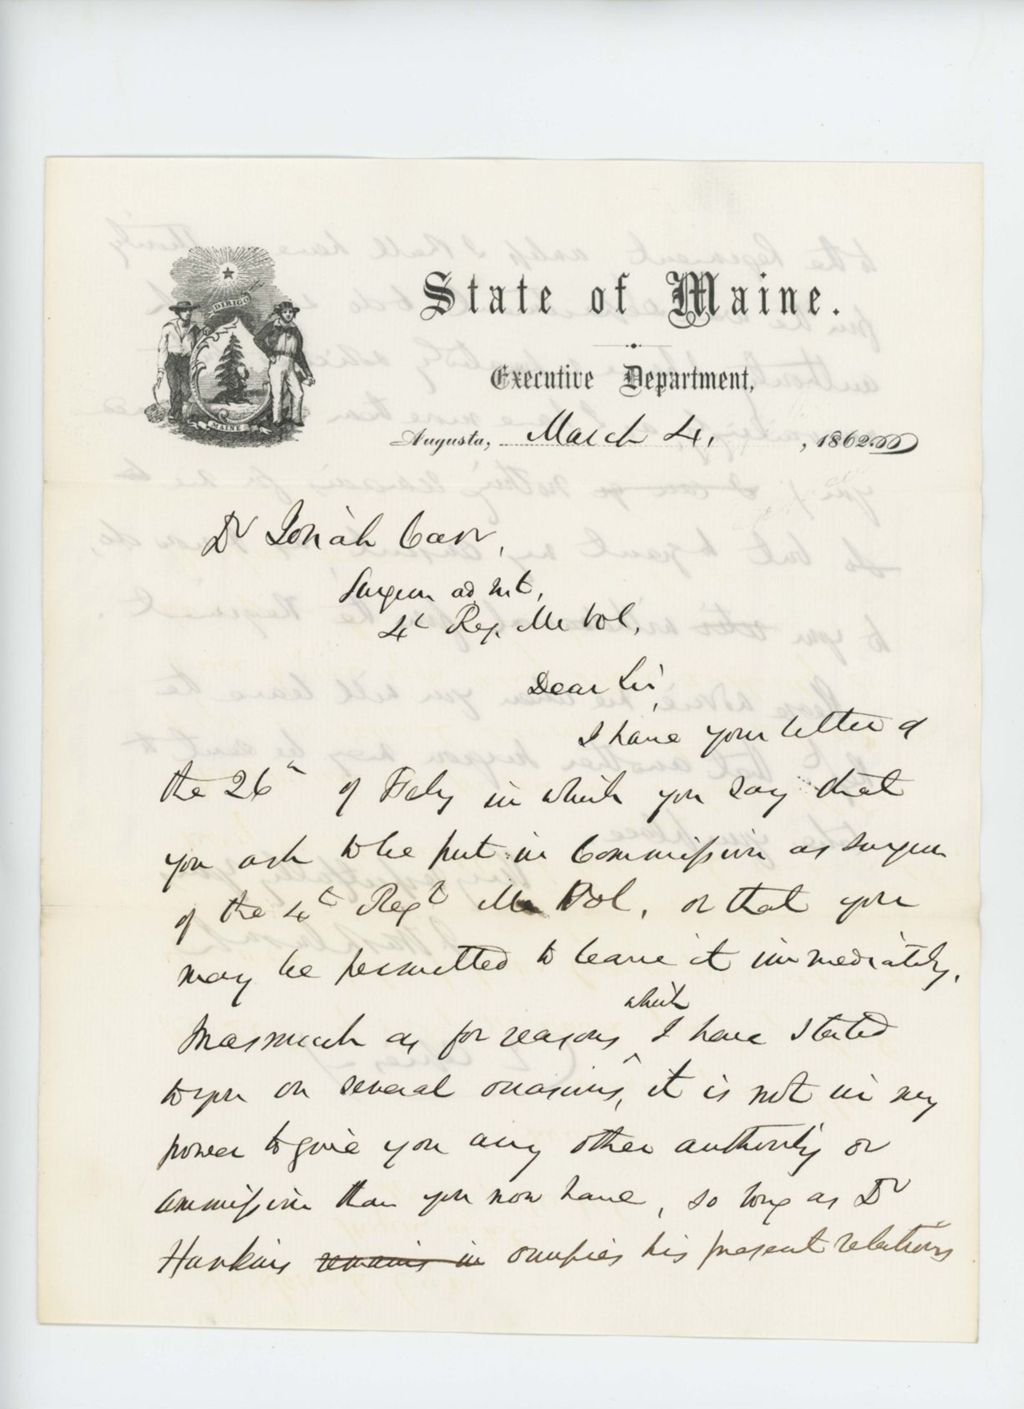 DIRIGO
MAINE
State of Maine.
Executive Department,
Augusta, March 4, , 1862.
Dr Josiah Carr,
Surgeon ad int,
4t Reg. Me Vol,
Dear Sir,
I have your letter of
the 26th of Feby in which you say that
you ask to be put in Commission as surgeon
of the 4th Regt Me Vol, or that you
may be permitted to leave it immediately,
Inasmuch as for reasons which I have stated
to you on several occasions, it is not in my
power to give you any other authority or
commission than you now have, so long as Dr
Hunkins remains in occupies his present relations